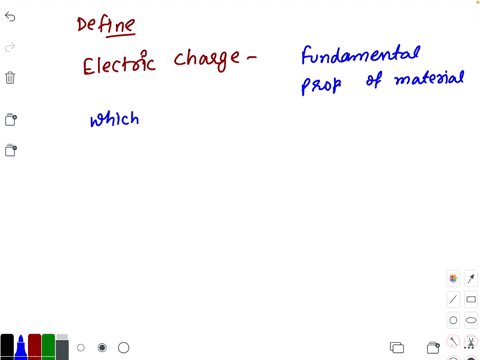 Define
Electric charge - fundamental
prop of material
which